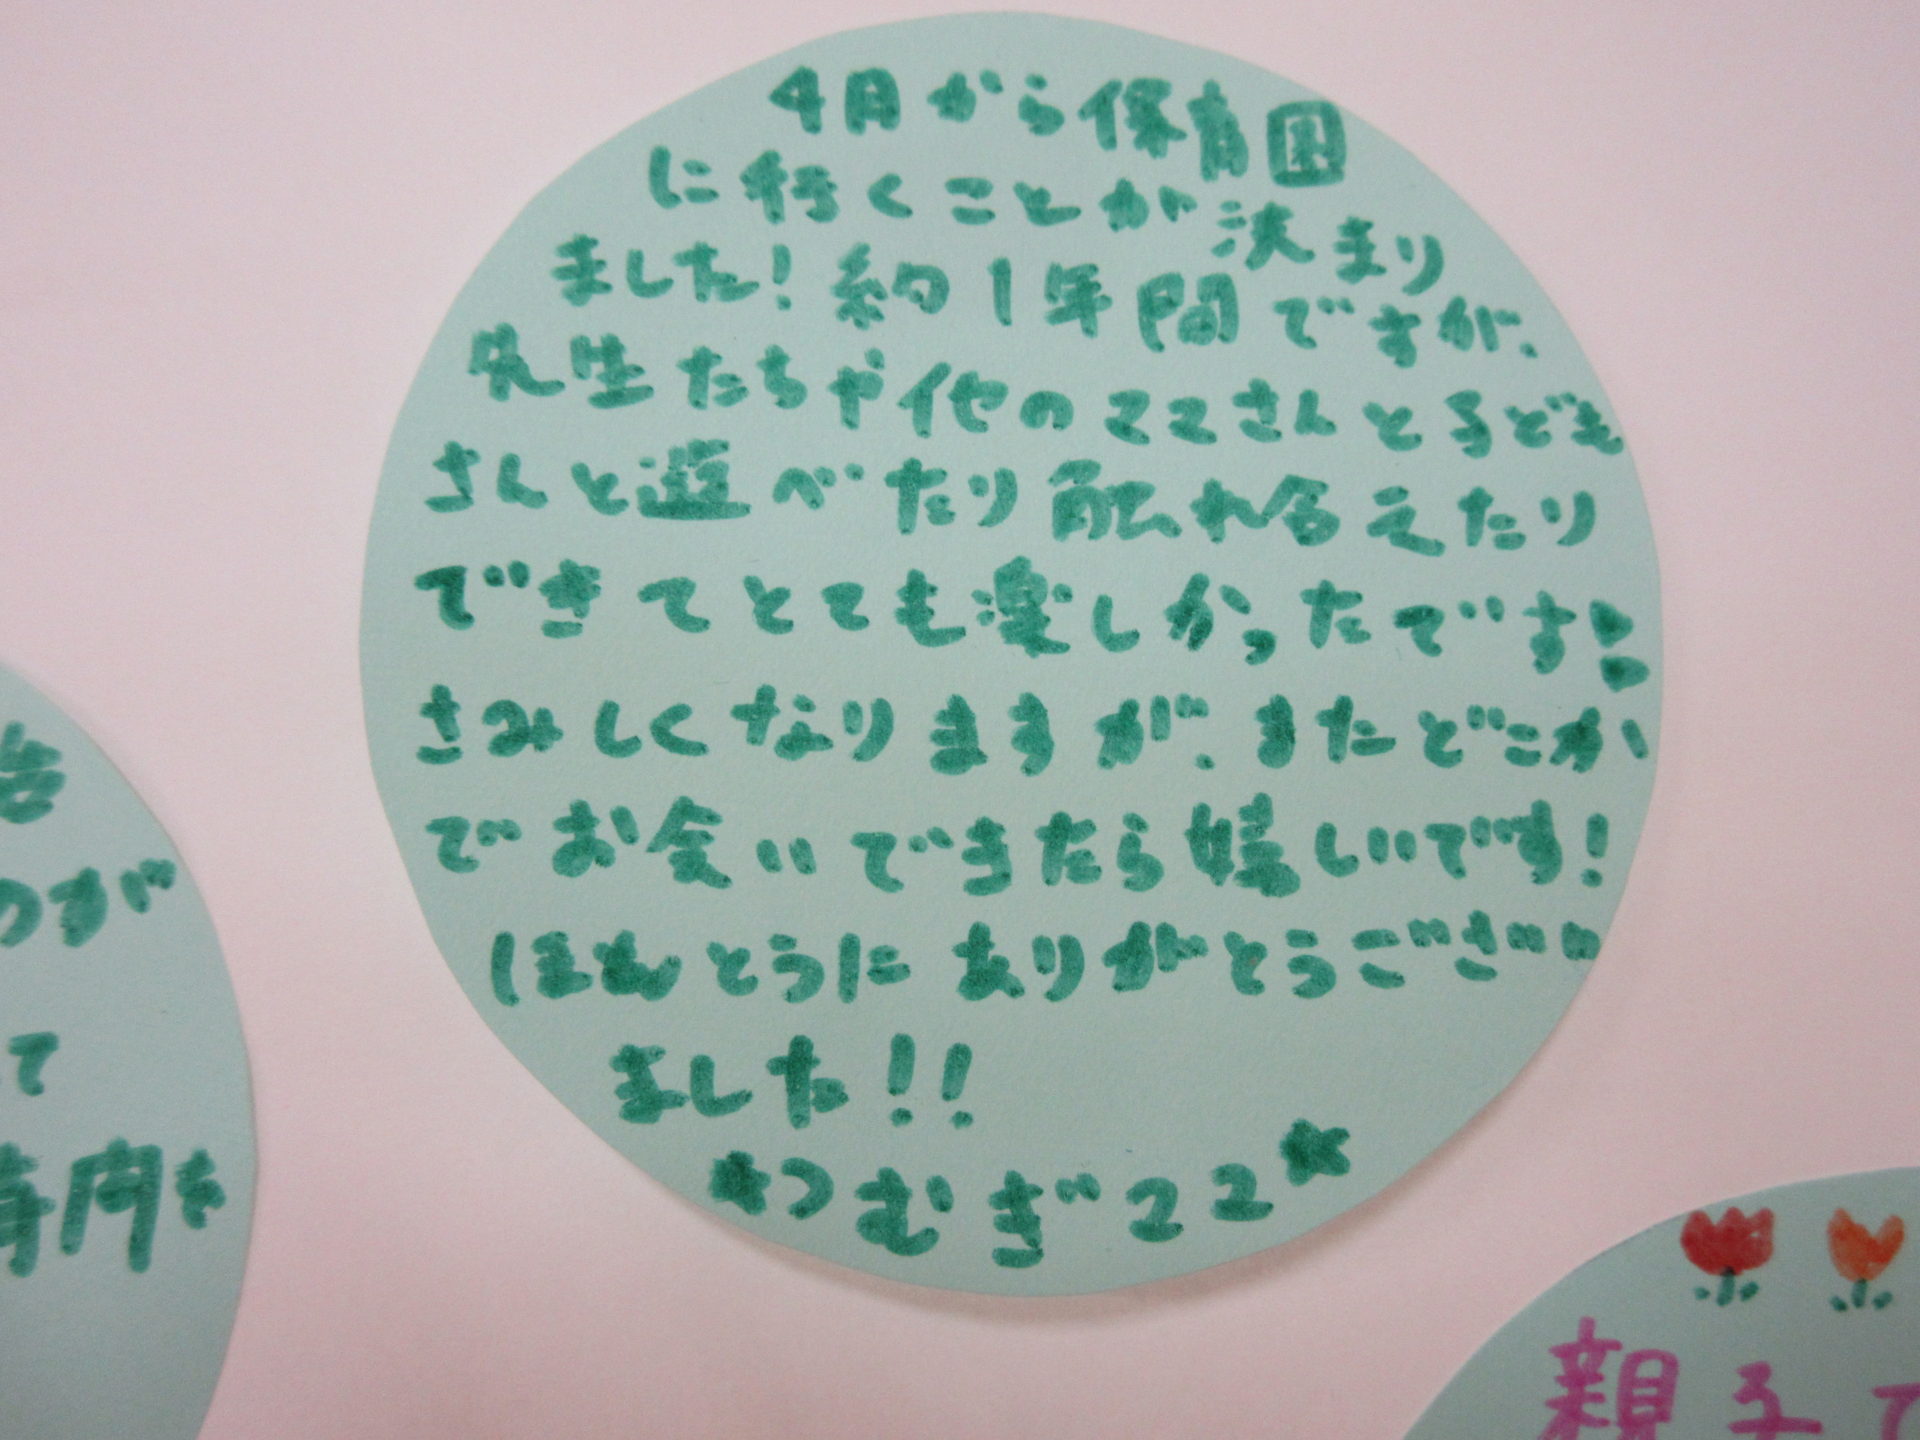 4月から保育園
に行くことが決まり
ました!約1年間ですが、
先生たちや他のママさんと子ども
さんと遊べたり触れ合えたり
できてとても楽しかったです
さみしくなりますが、またどこか
でお会いできたら嬉しいです!
ほんとうにありがとうござい
ました!!
★つむぎママ★
のが
て
時間を
親子で